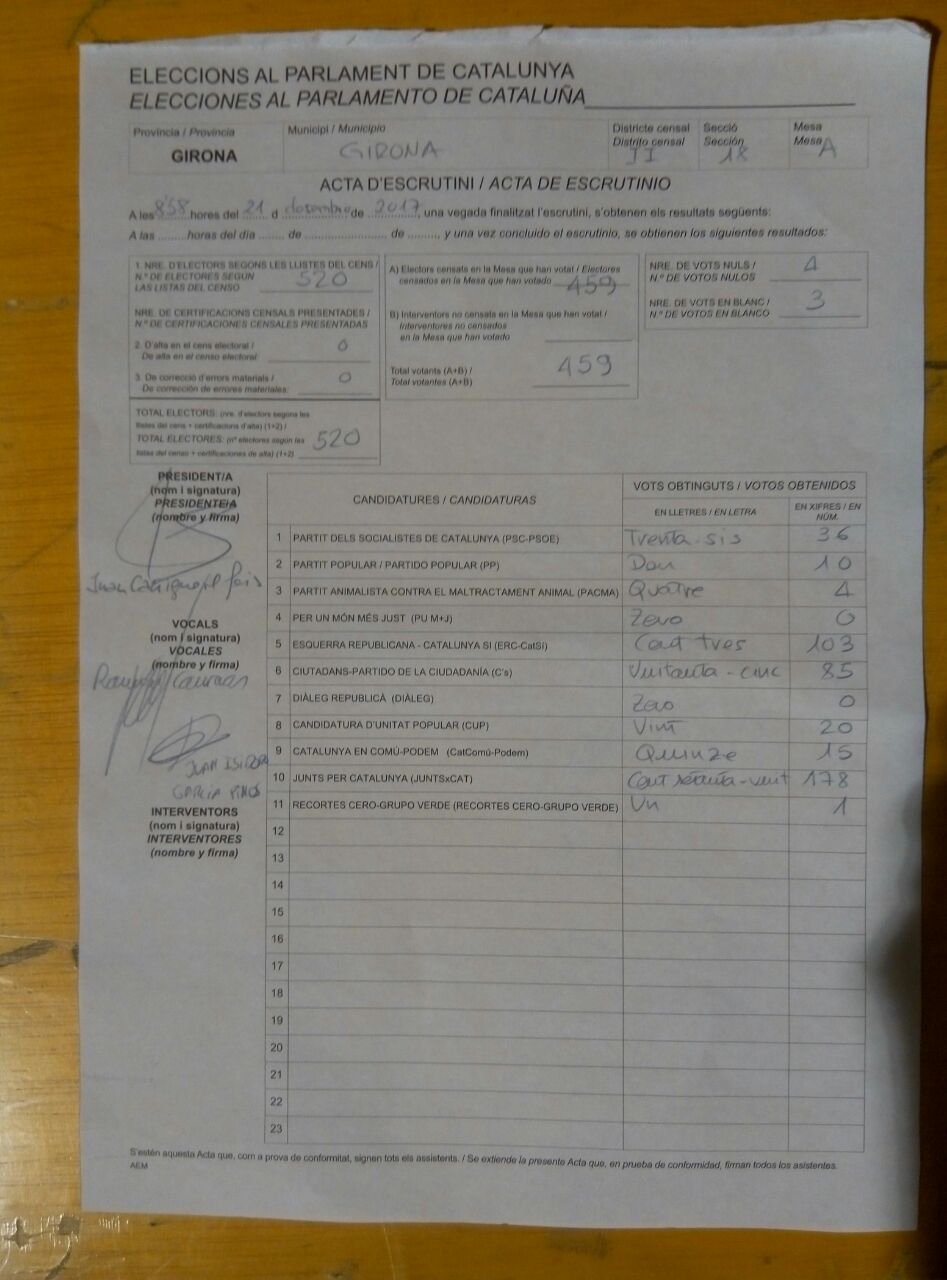 ELECCIONS AL PARLAMENT DE CATALUNYA
ELECCIONES AL PARLAMENTO DE CATALUÑA
Província / Provincia
GIRONA
Municipi / Municipio
GIRONA
Districte censal
Distrito censal
II
Secció
Sección
18
Mesa
Mesa
A
ACTA D'ESCRUTINI / ACTA DE ESCRUTINIO
A les 8'58 hores del 21 d desembre de 2017, una vegada finalitzat l'escrutini, s'obtenen els resultats següents:
A las ........ horas del día ....... de ...................... de ........, y una vez concluido el escrutinio, se obtienen los siguientes resultados:
1. NRE. D'ELECTORS SEGONS LES LLISTES DEL CENS /
N.º DE ELECTORES SEGÚN
LAS LISTAS DEL CENSO
520
NRE. DE CERTIFICACIONS CENSALS PRESENTADES /
N.º DE CERTIFICACIONES CENSALES PRESENTADAS
2. D'alta en el cens electoral /
De alta en el censo electoral
0
3. De correcció d'errors materials /
De corrección de errores materiales:
0
TOTAL ELECTORS: (nre. d'electors segons les
llistes del cens + certificacions d'alta) (1+2) /
TOTAL ELECTORES: (nº electores según las
listas del censo + certificaciones de alta) (1+2)
520
A) Electors censats en la Mesa que han votat / Electores
censados en la Mesa que han votado
459
B) Interventors no censats en la Mesa que han votat /
Interventores no censados
en la Mesa que han votado
Total votants (A+B) /
Total votantes (A+B)
459
NRE. DE VOTS NULS /
N.º DE VOTOS NULOS
4
NRE. DE VOTS EN BLANC /
N.º DE VOTOS EN BLANCO
3
PRESIDENT/A
(nom i signatura)
PRESIDENTE/A
(nombre y firma)
Juan
VOCALS
(nom i signatura)
VOCALES
(nombre y firma)
JUAN ISIDRO
GARCIA
INTERVENTORS
(nom i signatura)
INTERVENTORES
(nombre y firma)
CANDIDATURES / CANDIDATURAS
VOTS OBTINGUTS / VOTOS OBTENIDOS
EN LLETRES / EN LETRA
EN XIFRES / EN
NÚM.
1 PARTIT DELS SOCIALISTES DE CATALUNYA (PSC-PSOE) Trenta-sis 36
2 PARTIT POPULAR / PARTIDO POPULAR (PP) Deu 10
3 PARTIT ANIMALISTA CONTRA EL MALTRACTAMENT ANIMAL (PACMA) Quatre 4
4 PER UN MÓN MÉS JUST (PU M+J) Zero 0
5 ESQUERRA REPUBLICANA - CATALUNYA SÍ (ERC-CatSí) Cent tres 103
6 CIUTADANS-PARTIDO DE LA CIUDADANÍA (C's) Vuitanta-cinc 85
7 DIÀLEG REPUBLICÀ (DIÀLEG) Zero 0
8 CANDIDATURA D'UNITAT POPULAR (CUP) Vint 20
9 CATALUNYA EN COMÚ-PODEM (CatComú-Podem) Quinze 15
10 JUNTS PER CATALUNYA (JUNTSxCAT) Cent setanta-vuit 178
11 RECORTES CERO-GRUPO VERDE (RECORTES CERO-GRUPO VERDE) Un 1
12
13
14
15
16
17
18
19
20
21
22
23
S'estén aquesta Acta que, com a prova de conformitat, signen tots els assistents. / Se extiende la presente Acta que, en prueba de conformidad, firman todos los asistentes.
AEM